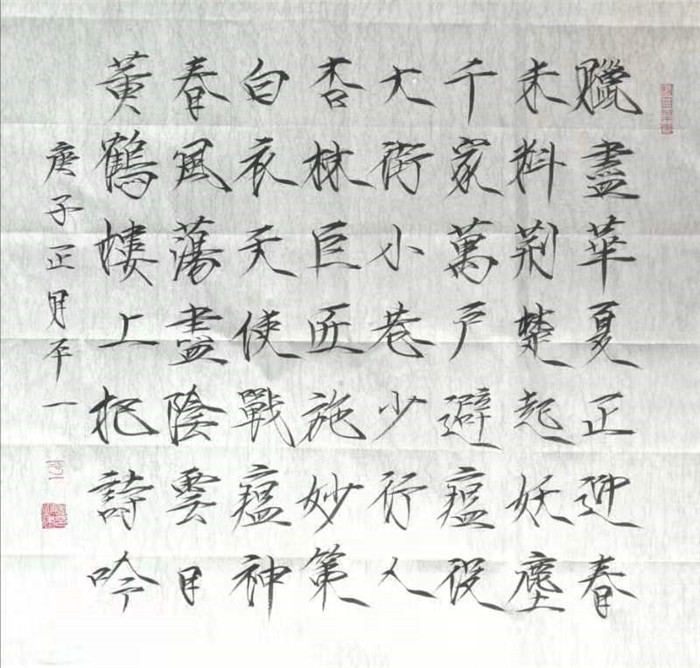 臘盡華夏正迎春
未料荆楚起妖塵
千家萬户避瘟役
大街小巷少行人
杏林巨匠施妙策
白衣天使戰瘟神
春風蕩盡陰雲日
黃鶴樓上把詩吟
庚子正月平一